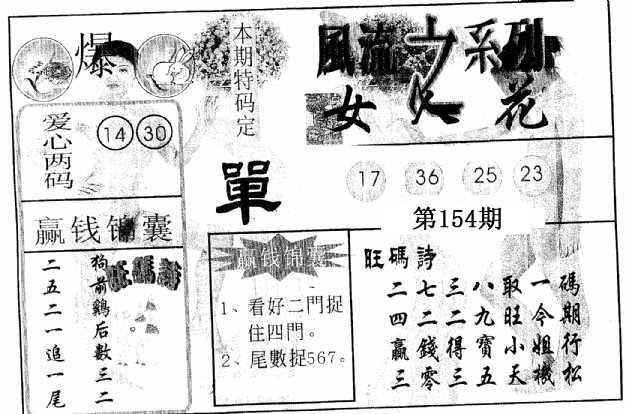 爆
本期特码定
單
風流之系列
女人花
爱心两码
14 30
17 36 25 23
第154期
赢钱锦囊
旺碼詩
狗前鷄后數三二。
二五二一追一尾
赢钱锦囊
1、看好二門捉
住四門。
2、尾數捉567。
旺碼詩
二七三八取一碼
四二二九旺今期
贏錢得寶小姐行
三零三五天機松